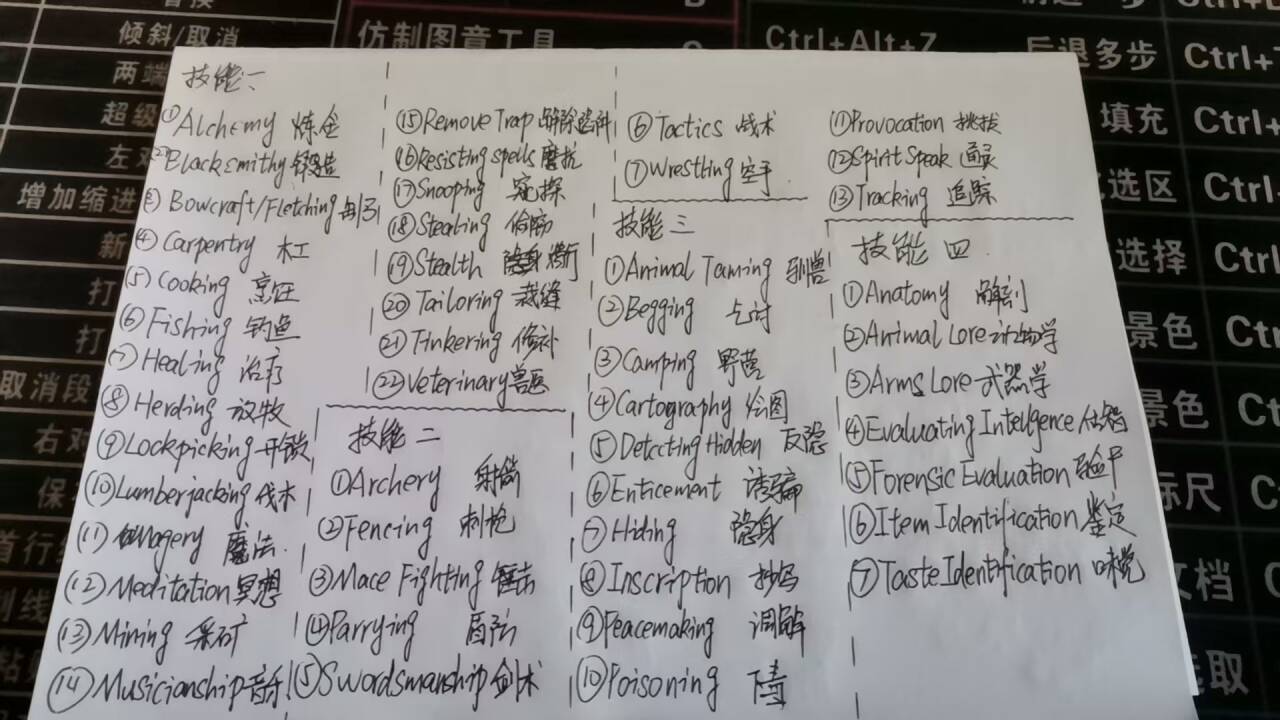 替换
倾斜/取消
两端
超级
左对
增加缩进
新
打
打
取消段
右对
保
首行
制线
粘贴
仿制图章工具
B
Ctrl+Alt+Z
后退多步
Ctrl+
填充
Ctrl+
选区
Ctrl+
选择
Ctrl+
景色
Ctrl
景色
Ctrl
标尺
Ctrl
文档
Ctrl
选取
技能一
①Alchemy 炼金
②Blacksmithy 锻造
③ Bowcraft/Fletching 制弓
④ Carpentry 木工
⑤ Cooking 烹饪
⑥ Fishing 钓鱼
⑦ Healing 治疗
⑧ Herding 放牧
⑨ Lockpicking 开锁
⑩ Lumberjacking 伐木
⑪ Magery 魔法
⑫ Meditation 冥想
⑬ Mining 采矿
⑭ Musicianship 音乐
⑮ Remove Trap 解除陷阱
⑯ Resisting spells 魔抗
⑰ Snooping 窥探
⑱ Stealing 偷窃
⑲ Stealth 隐身潜行
⑳ Tailoring 裁缝
㉑ Tinkering 修补
㉒ Veterinary 兽医
技能二
① Archery 射箭
② Fencing 刺枪
③ Mace Fighting 锤击
④ Parrying 盾防
⑤ Swordsmanship 剑术
⑥ Tactics 战术
⑦ Wrestling 空手
技能三
① Animal Taming 驯兽
② Begging 乞讨
③ Camping 野营
④ Cartography 绘图
⑤ Detecting Hidden 反隐
⑥ Enticement 诱骗
⑦ Hiding 隐身
⑧ Inscription 抄写
⑨ Peacemaking 调解
⑩ Poisoning 下毒
⑪ Provocation 挑拨
⑫ Spirit Speak 通灵
⑬ Tracking 追踪
技能四
① Anatomy 解剖
② Animal Lore 动物学
③ Arms Lore 武器学
④ Evaluating Intellgence 估智
⑤ Forensic Evaluation 验尸
⑥ Item Identification 鉴定
⑦ Taste Identification 味觉